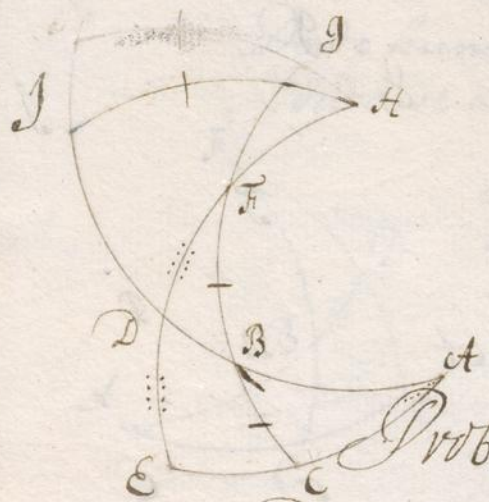 g
J
H
F
D
B
A
E
C
Prob